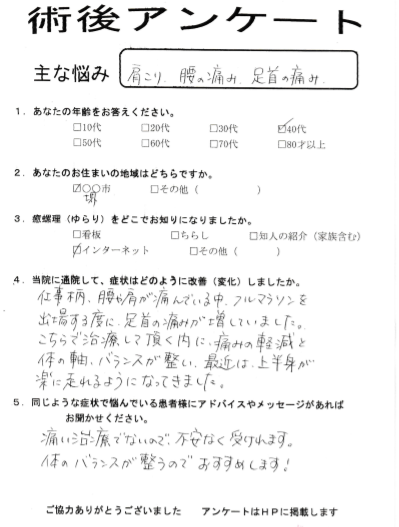 術後アンケート
主な悩み
肩こり、腰の痛み、足首の痛み、
1．あなたの年齢をお答えください。
□10代 □20代 □30代 ☑40代
□50代 □60代 □70代 □80才以上
2．あなたのお住まいの地域はどちらですか。
☑○○市 □その他（ ）
堺
3．癒蠕理（ゆらり）をどこでお知りになりましたか。
□看板 □ちらし □知人の紹介（家族含む）
☑インターネット □その他（ ）
4．当院に通院して、症状はどのように改善（変化）しましたか。
仕事柄、腰や肩が痛んでいる中、フルマラソンを
出場する度に、足首の痛みが増していました。
こちらで治療して頂く内に、痛みの軽減と
体の軸、バランスが整い、最近は、上半身が
楽に走れるようになってきました。
5．同じような症状で悩んでいる患者様にアドバイスやメッセージがあれば
お聞かせください。
痛い治療でないので、不安なく受けれます。
体のバランスが整うのでおすすめします！
ご協力ありがとうございました アンケートはHPに掲載します